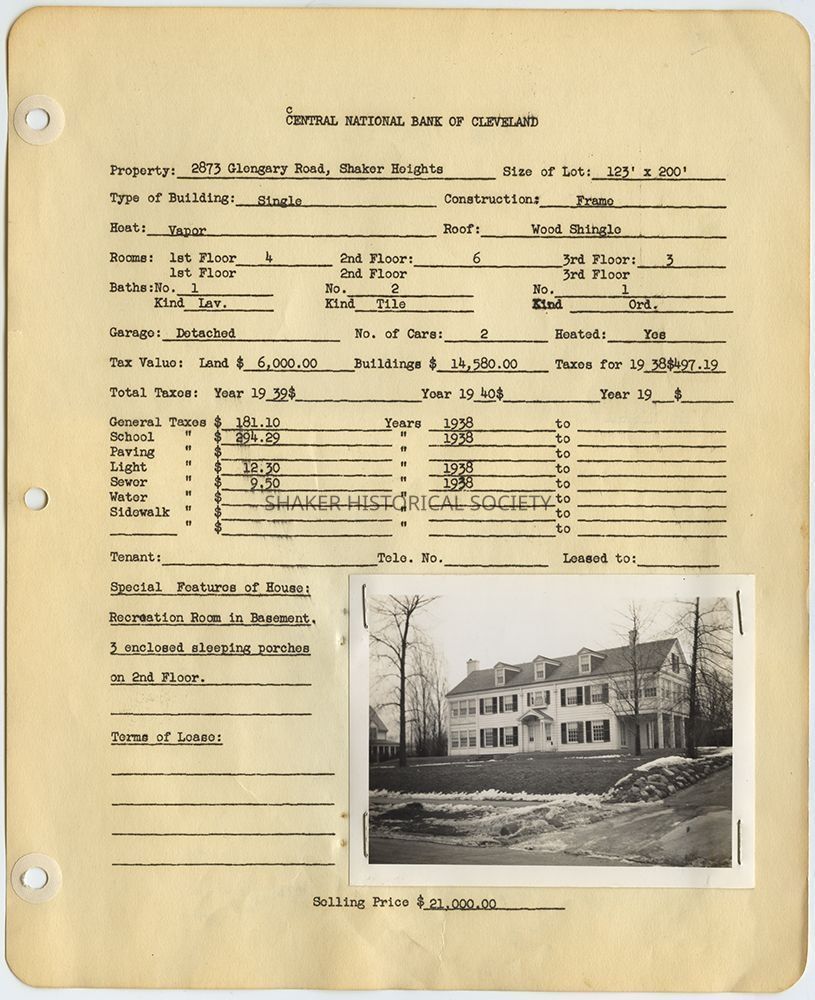 C
CENTRAL NATIONAL BANK OF CLEVELAND
Property: 2873 Glengary Road, Shaker Heights Size of Lot: 123' x 200'
Type of Building: Single Construction: Frame
Heat: Vapor Roof: Wood Shingle
Rooms: 1st Floor 4 2nd Floor: 6 3rd Floor: 3
1st Floor 2nd Floor 3rd Floor
Baths: No. 1 No. 2 No. 1
Kind Lav. Kind Tile Kind Ord.
Garage: Detached No. of Cars: 2 Heated: Yes
Tax Value: Land $ 6,000.00 Buildings $ 14,580.00 Taxes for 19 38 $497.19
Total Taxes: Year 19 39 $ Year 19 40 $ Year 19 $
General Taxes $ 181.10 Years 1938 to
School " $ 294.29 " 1938 to
Paving " $ " to
Light " $ 12.30 " 1938 to
Sewer " $ 9.50 " 1938 to
Water " $ " to
SHAKER HISTORICAL SOCIETY
Sidewalk " $ " to
" $ " to
Tenant: Tele. No. Leased to:
Special Features of House:
Recreation Room in Basement.
3 enclosed sleeping porches
on 2nd Floor.
Terms of Lease:
Selling Price $ 21,000.00